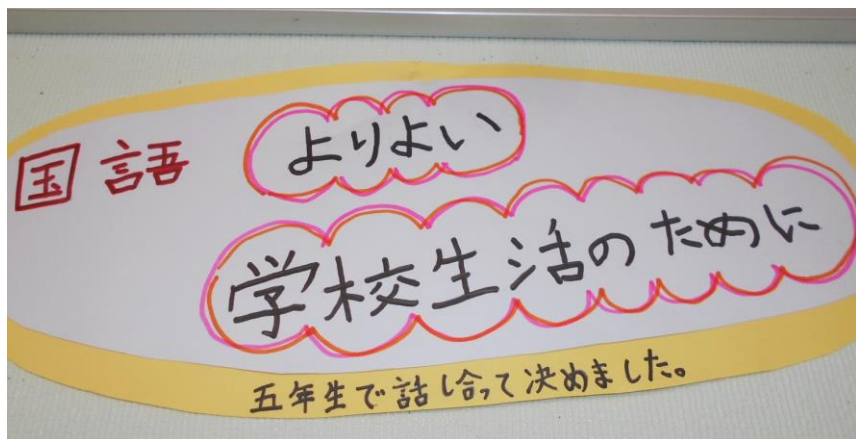 国語
よりよい
学校生活のために
五年生で話し合って決めました。